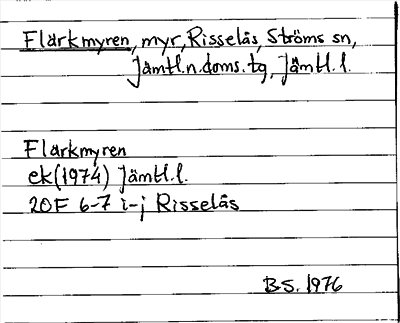 Flarkmyren, myr, Risselås, Ströms sn,
Jämtl.n.doms.tg, Jämtl.l.
Flarkmyren
ek(1974) Jämtl.l.
20F 6-7 i-j Risselås
B.S. 1976